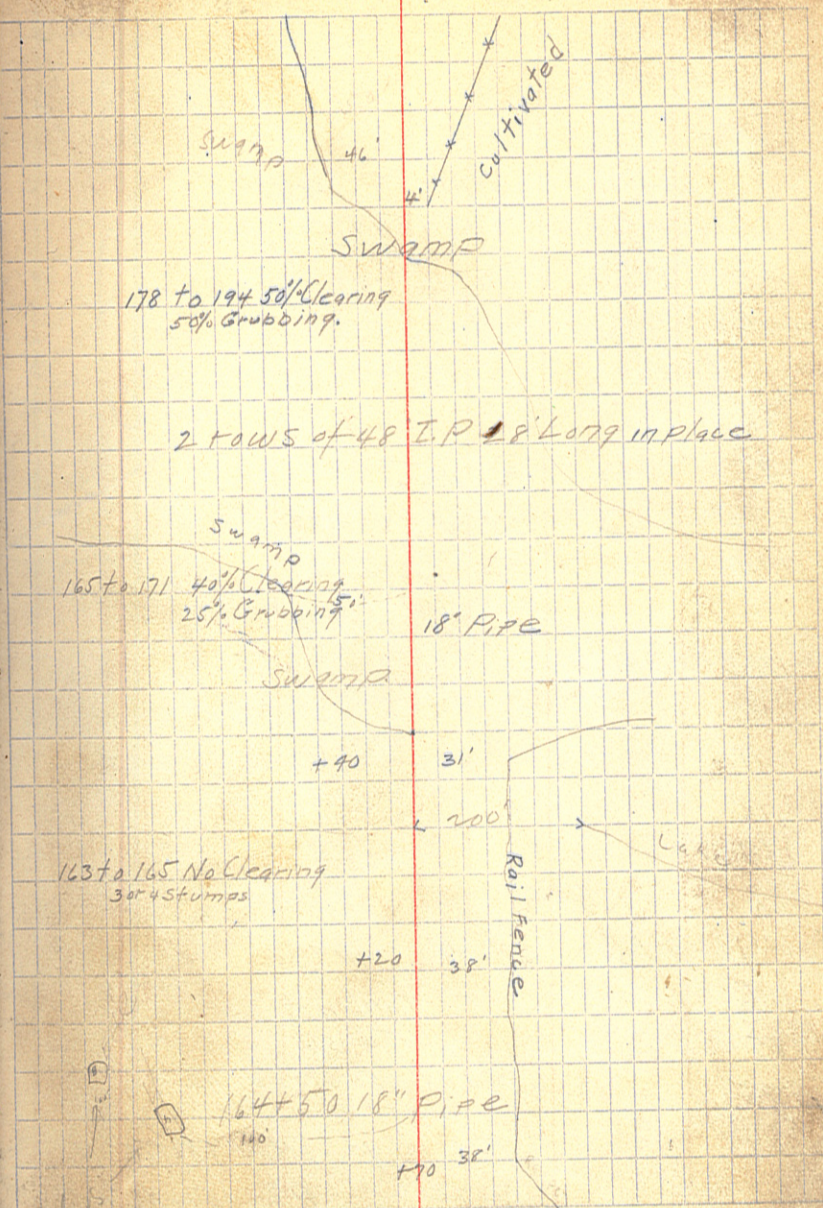 Cultivated
Swamp 46'
4'
Swamp
178 to 194 50% Clearing
50% Grubbing.
2 rows of 48 I.P 28' Long in place
Swamp
165 to 171 40% Clearing
25% Grubbing 50'
18" Pipe
Swamp
+40 31'
200'
Lake
163 to 165 No Clearing
3 or 4 Stumps
Rail Fence
+20 38'
164+50 18" Pipe
100'
+70 38'